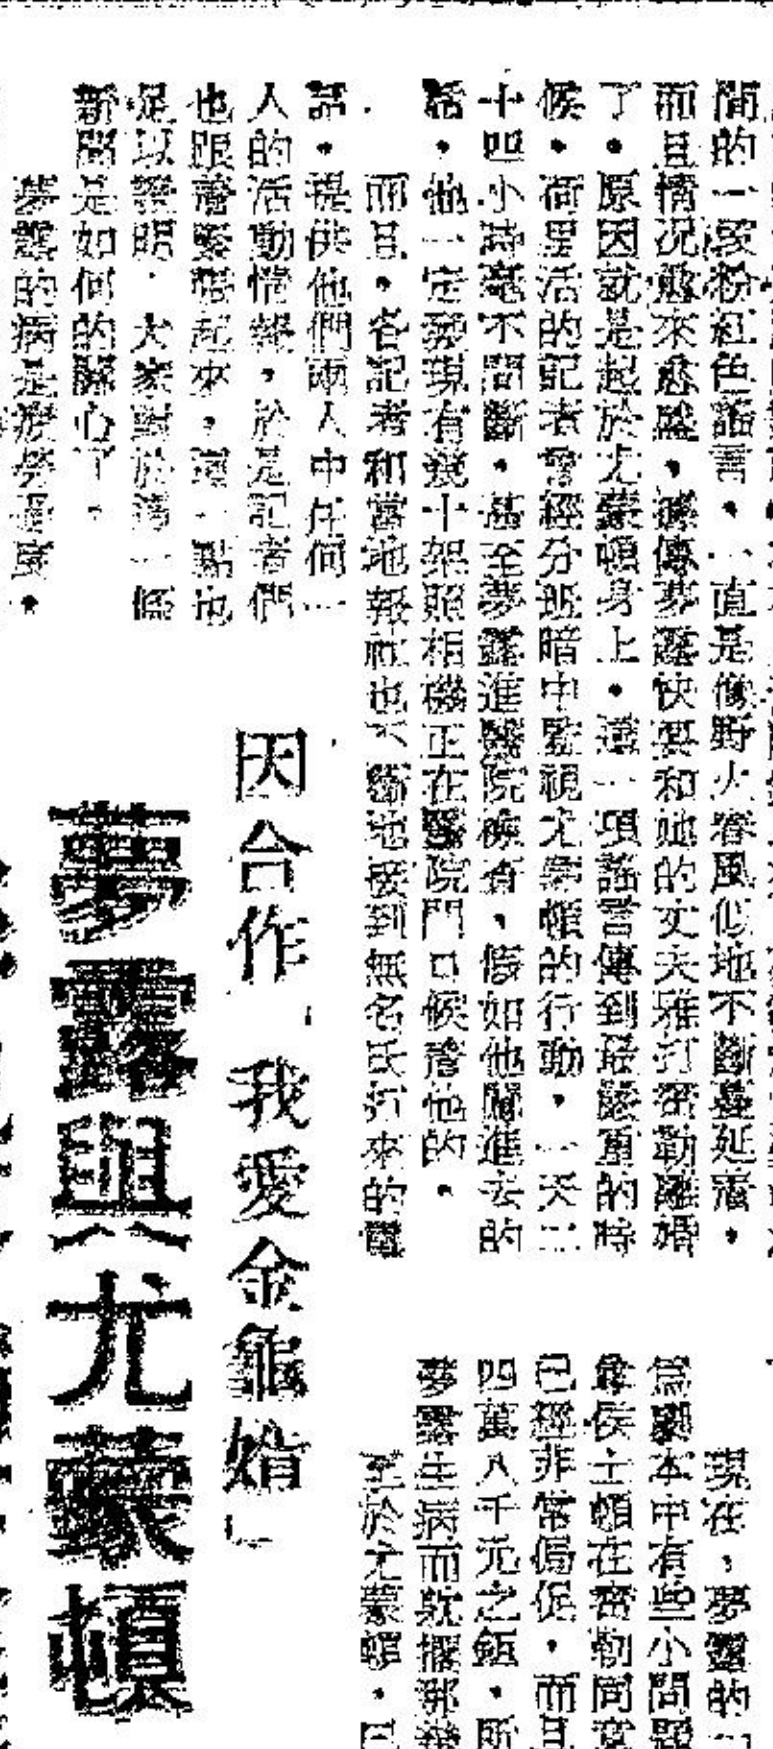 間的一段粉紅色謠言,一直是像野火春風似地不斷蔓延着,
而且情況愈來愈盛,據傳夢露快要和她的丈夫雅打密勒離婚
了。原因就是起於尤蒙頓身上。這一項謠言傳到最嚴重的時
候,荷里活的記者曾經分班暗中監視尤蒙頓的行動,一天二
十四小時毫不間斷,甚至夢露進醫院檢查,假如他闖進去的
話,他一定發現有幾十架照相機正在醫院門口候着他的。
而且,各記者和當地報社也不斷地接到無名氏打來的電
話,提供他們兩人中任何一
人的活動情報,於是記者們
也跟着緊張起來,這一點也
足以證明,大家對於這一條
新聞是如何的關心了。
夢露的病是疲勞過度,
因合作「我愛金龜婿」
夢露與尤蒙頓
現在,夢露的
為劇本中有些小問題
韋侯士頓在密勒同意
已經非常侷促,而且
四萬八千元之鉅,所
夢露生病而耽擱
至於尤蒙頓,